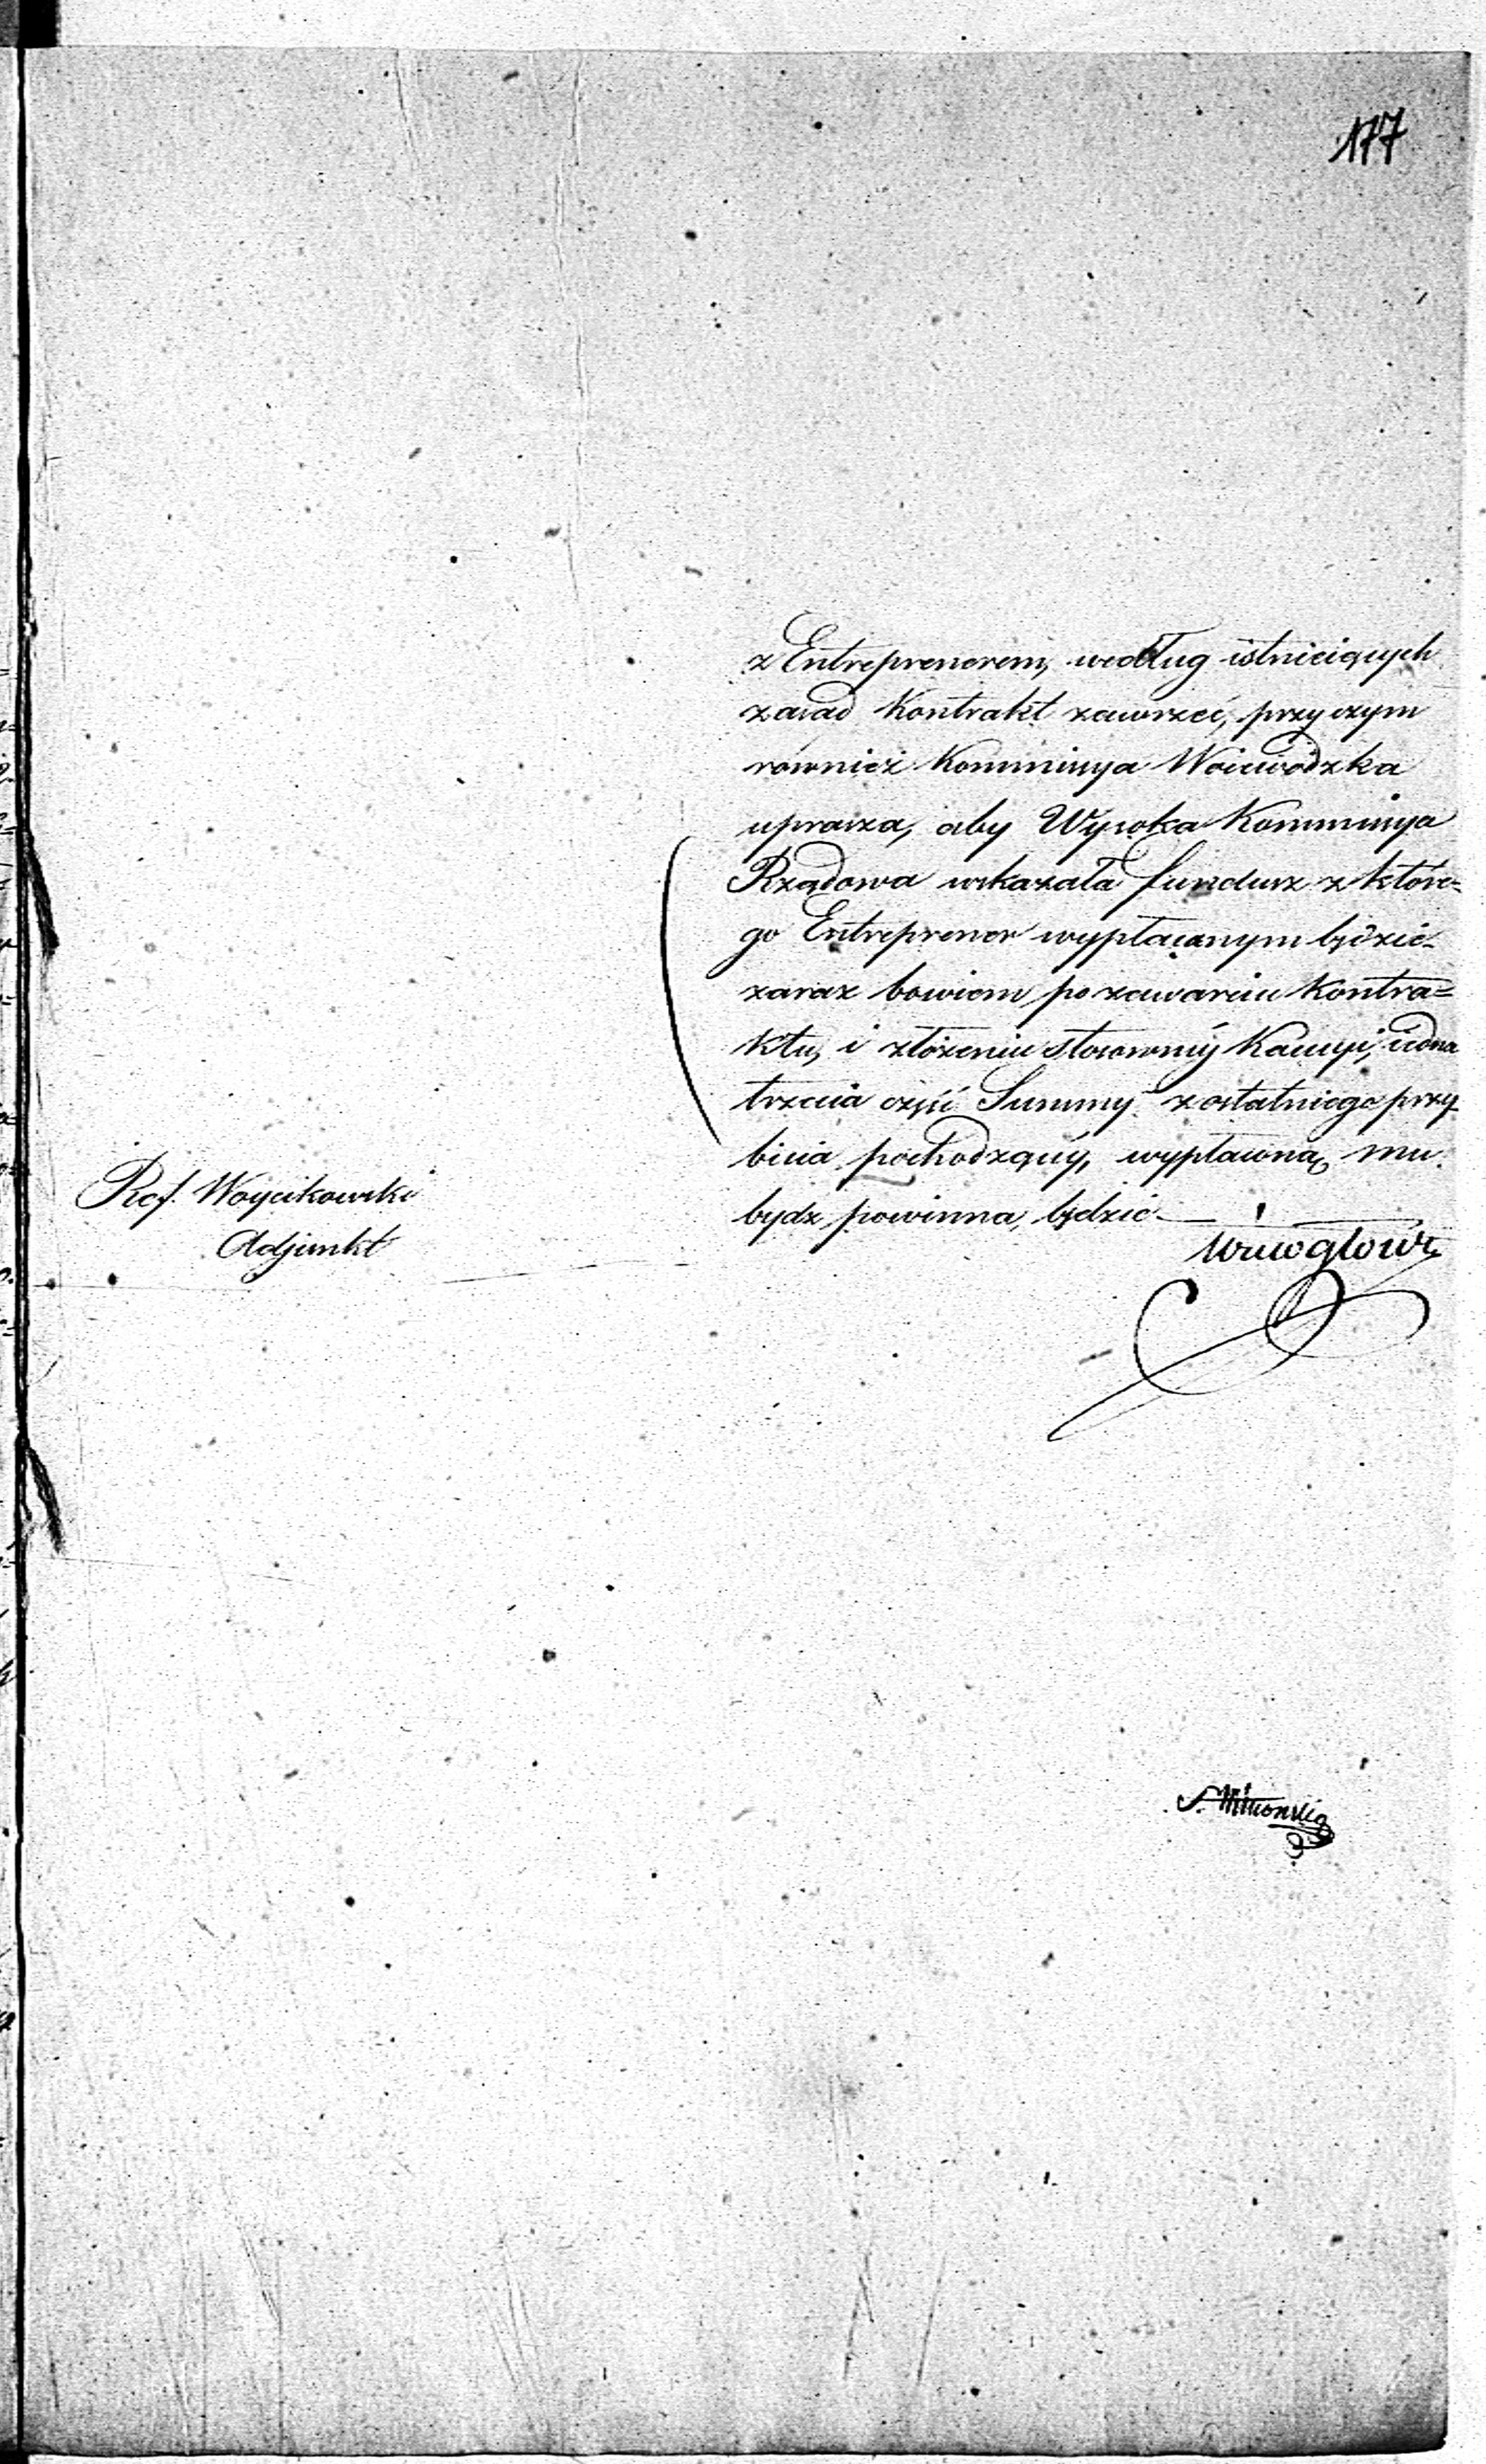 177
z Entreprenerem, według istnieiących
zasad Kontrakt zawrzeć, przyczym
również Kommissya Woiewódzka
uprasza, aby Wysoka Kommissya
Rządowa wskazała fundusz z które-
go Entreprener wypłacanym będzie
zaraz bowiem po zawarciu Kontra=
ktu, i złożeniu stosowney Kaucyi, iedna
trzecia część Summy z ostatniego przy
bicia pochodzącey, wypłaconą mu
bydź powinna, będzie
Ref. Woycikowski
Adjunkt